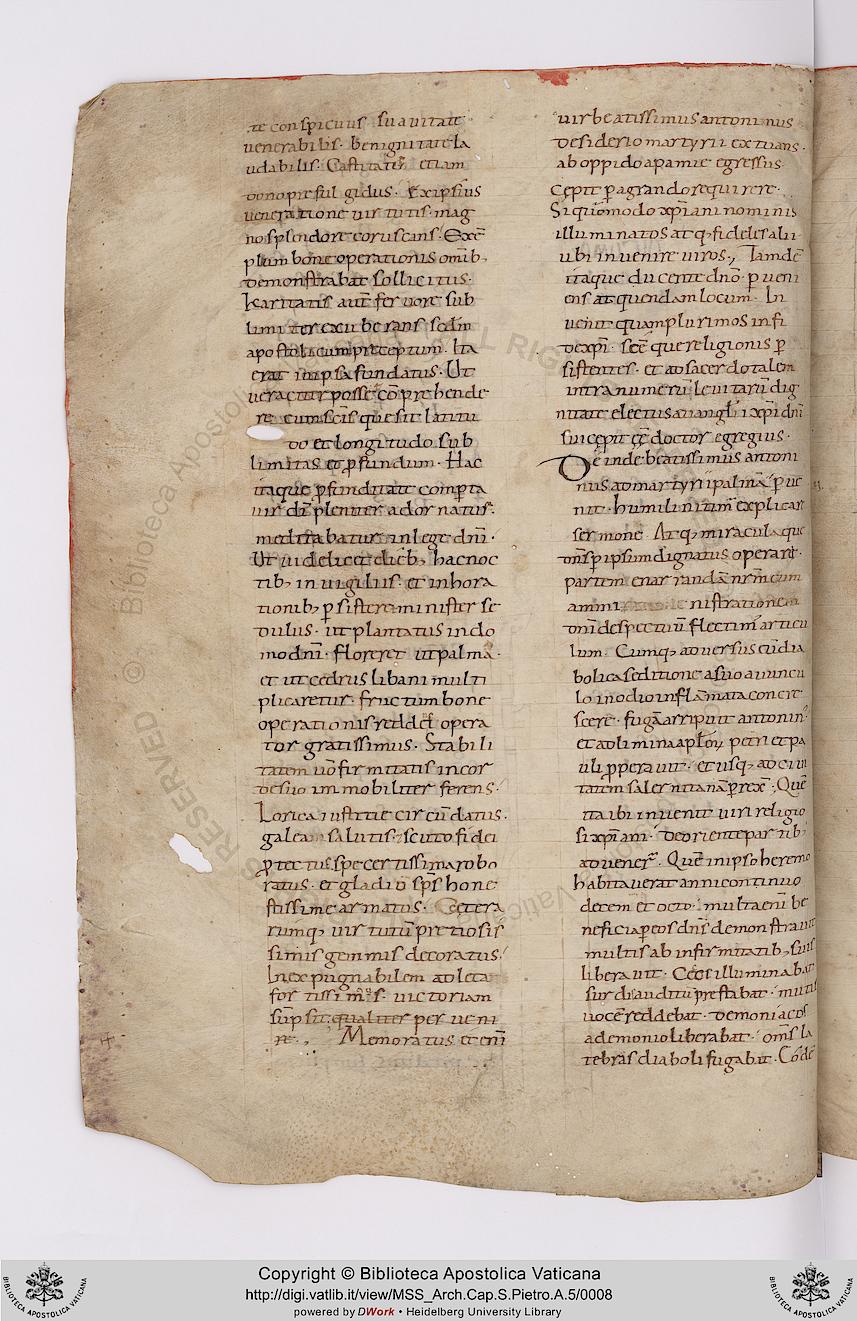 te conspicuus suauitate
uenerabilis. benignitate la
udabilis. Castitatis etiam
dono prefulgidus. Ex ipsius
ueneratione uirtutis. mag
no splendore coruscans. Exē
plum bone operationis omib;
demonstrabat sollicitus.
Karitatis aut̄ feruore sub
limiter exuberans scd̄m
apostolicum preceptum. Ita
erat in ipsa fundatus. Ut
ueraciter posset cōprehende
re cum sc̄is que sit latitu
do et longitudo sub
limitas et p̄fundum. Hac
itaque p̄funditate comp̄ta
uir dī pleniter adornatus.
meditabatur in lege dn̄i.
Ut uidelicet dieb; hac noc
tib; in uigiliis. et in hora
tionib; p̄sisteret minister se
dulus. ut plantatus in do
mo dn̄i. floreret ut palma.
et ut cedrus libani multi
plicaretur. fructum bone
operationis redderet opera
tor gratissimus. Stabili
tatem uō firmitatis in cor
de suo immobiliter ferens.
Lorica iustitie circūdatus.
galea salutis. scuto fidei
protectus. spe certissima robo
ratus. et gladiū sp̄s hone
stissime armatus. Cetera
rumq; uirtutū pretiosis
simis gemmis decoratus.
Inexpugnabilem adleta
fortissimus. uictoriam
sūpsit. qualiter perueni
re. Memoratus et enī
uir beatissimus antoninus
desiderio martyrii extuans.
ab oppido apamie egressus
cepit p̄agrando requirere.
Si quōmodo xp̄iani nominis
illuminatos atq; fideles ali
ubi inuenire uiros, Tamdē
itaque ducente dn̄o. p̄ueni
ens at quendam locum. In
uenit quamplurimos in fi
de xp̄i. sc̄e que religionis p̄
sistentes. et ad sacerdotalem
intra numerū leuitarū dig
nitate electus a uiangl̄i xp̄i dn̄i
suscepit ēē doctor egregius.
Deinde beatissimus antoni
nus ad martyrii palmā p̄ue
nit. humilinitim̄ explicare
sermone. Atq; miracula que
dn̄s p̄ ipsum dignatus operare.
partem enarrandā nr̄m cum
ammi nistrationem
dn̄i despectuū flectim̄ articu
lum. Cumq; aduersus eū dia
bolica seditione a suo auuncu
lo in odio inflāmata concre
scere. fugā arripuit antonin
et ad limina apl̄oꝝ petri et pa
uli p̄perauit. et usq; ad ciui
tatem salernitanā p̄rexē. Quē
ita ibi inuenit uiri religio
si xp̄iani. de oriente partib;
aduener. Quē in ipso heremo
habitauerat anni continuo
decem et octo. multa enī be
neficia p̄ eos dn̄s demonstrauit
multis ab infirmitatib; suis
liberauit. Cecis illuminabat
surdis auditū prestabat. mutis
uocē reddebat. demoniacos
a demonio liberabat. om̄s la
tebras diaboli fugabat. Codē
Copyright © Biblioteca Apostolica Vaticana
http://digi.vatlib.it/view/MSS_Arch.Cap.S.Pietro.A.5/0008
powered by DWork • Heidelberg University Library